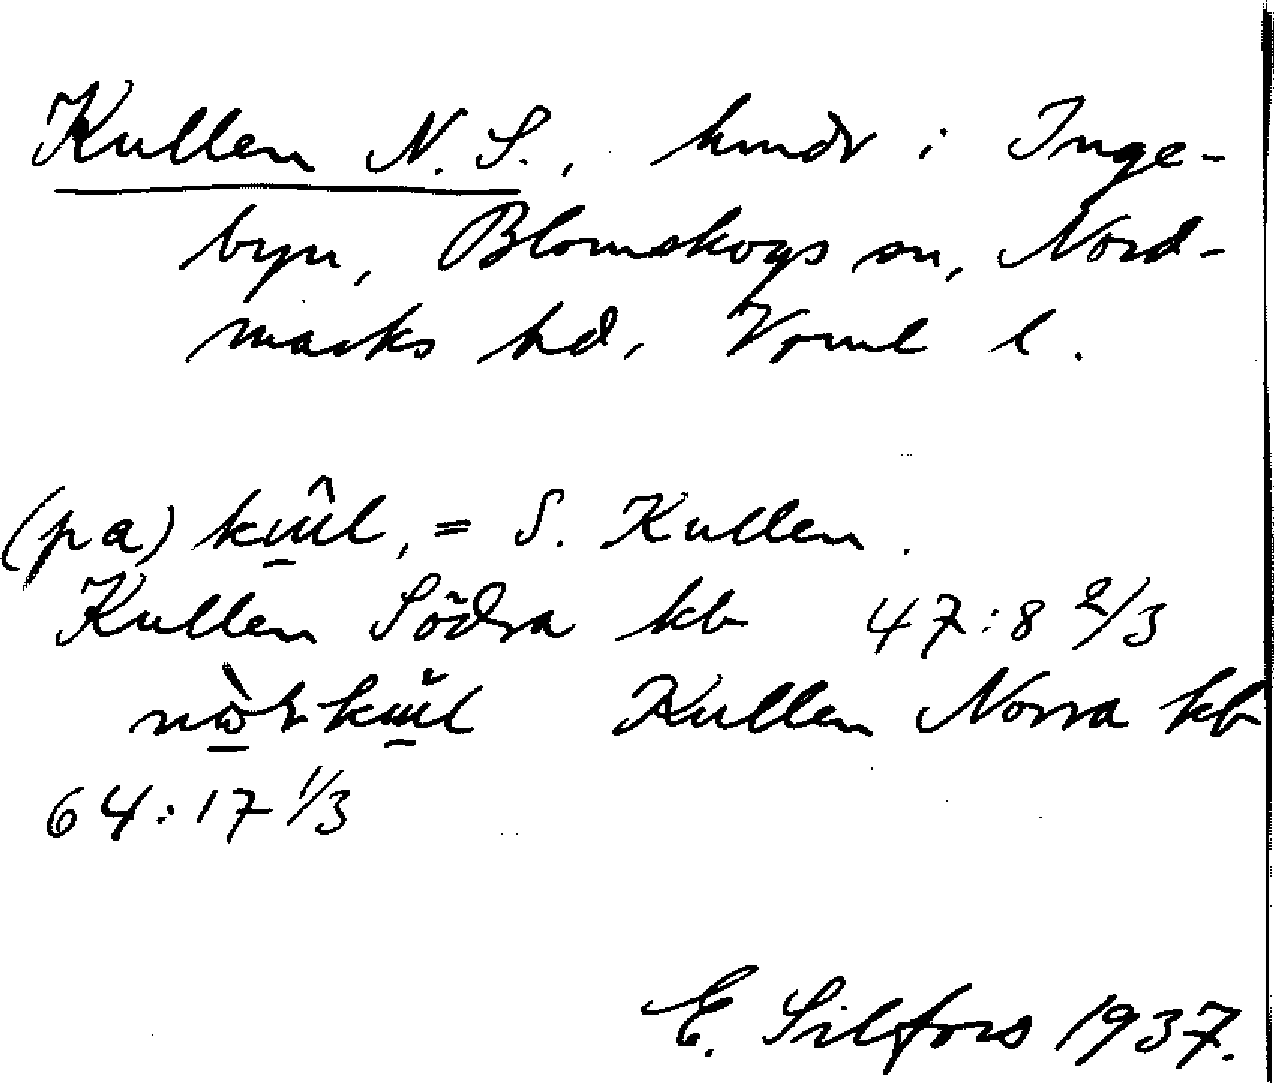 Kullen N. S., hmdr i Inge-
byn, Blomskogs sn, Nord-
marks hd, Vrml l.
(pa) kɯ̂l, = S. Kullen.
Kullen Södra kb 47:8 2/3
Kullen Norra kb
64:17 1/3
E. Silfors 1937.